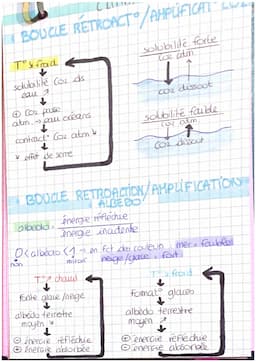 BOUCLE RÉTROACT°/AMPLIFICAT° CO2
T° ↘ froid
solubilité CO2 ds
eau ↗
⊕ CO2 passe
atm → eau océans
contract° CO2 atm ↘
↘ effet de serre
solubilité forte
CO2 atm
CO2 dissout
solubilité faible
CO2 atm
CO2 dissout
BOUCLE RETROACTION/AMPLIFICATION
ALBEDO
albédo = énergie réfléchie
énergie incidente
0 < albédo < 1 → en fct des couleurs
noir
miroir
mer = faible
neige/glace = fort
T° ↗ chaud
fonte glace/neige
albédo terrestre
moyen ↘
⊖ énergie réfléchie
⊕ énergie absorbée
T° ↘ froid
format° glaces
albédo terrestre
moyen ↗
⊕ énergie réfléchie
⊖ énergie absorbée